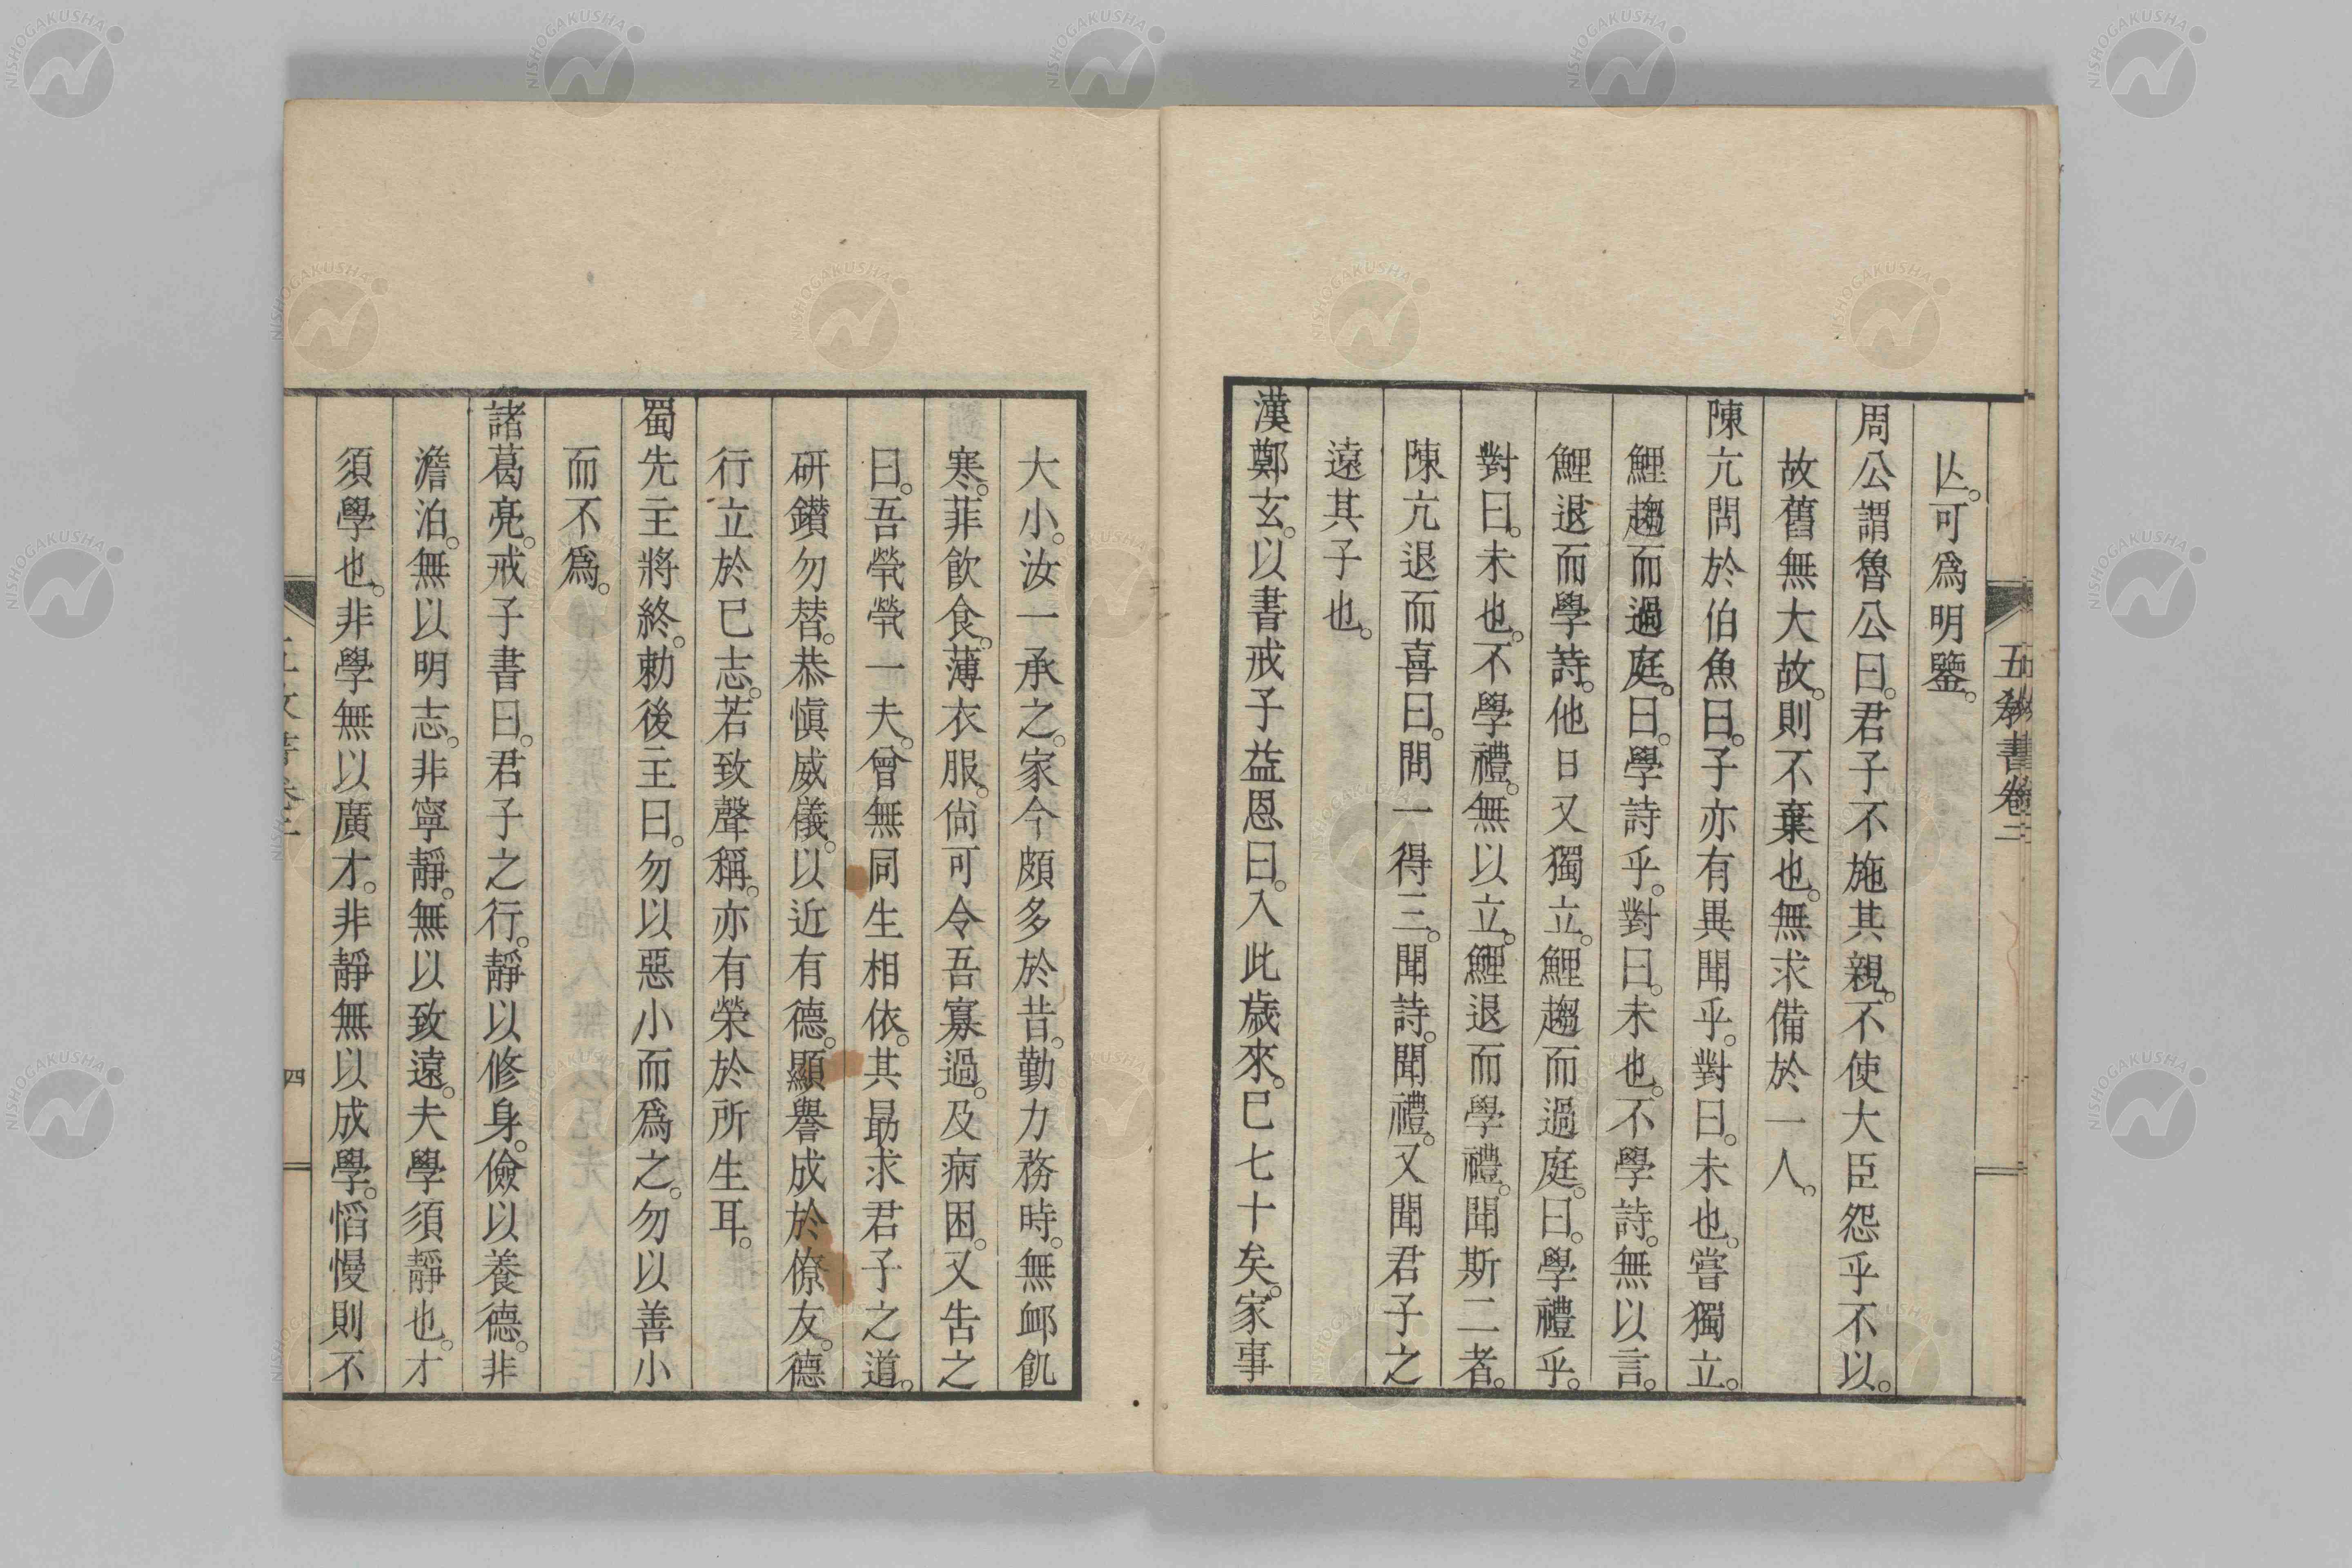 五教書卷三
亾。可爲明鑒。
周公謂魯公曰。君子不施其親。不使大臣怨乎不以。
故舊無大故。則不棄也。無求備於一人。
陳亢問於伯魚曰。子亦有異聞乎。對曰。未也。嘗獨立。
鯉趨而過庭。曰。學詩乎。對曰。未也。不學詩。無以言。
鯉退而學詩。他日又獨立。鯉趨而過庭。曰。學禮乎。
對曰。未也。不學禮。無以立。鯉退而學禮。聞斯二者。
陳亢退而喜曰。問一得三。聞詩。聞禮。又聞君子之
遠其子也。
漢鄭玄。以書戒子益恩曰。入此歲來。已七十矣。家事
大小。汝一承之。家今頗多於昔。勤力務時。無卹飢
寒。菲飮食。薄衣服。尙可令吾寡過。及病困。又告之
曰。吾煢煢一夫。曾無同生相依。其勖求君子之道。
硏鑽勿替。恭愼威儀。以近有德。顯譽成於僚友。德
行立於已志。若致聲稱。亦有榮於所生耳。
蜀先主將終。勅後主曰。勿以惡小而爲之。勿以善小
而不爲。
諸葛亮。戒子書曰。君子之行。靜以修身。儉以養德。非
澹泊。無以明志。非寧靜。無以致遠。夫學須靜也。才
須學也。非學無以廣才。非靜無以成學。慆慢則不
四
NISHOGAKUSHA